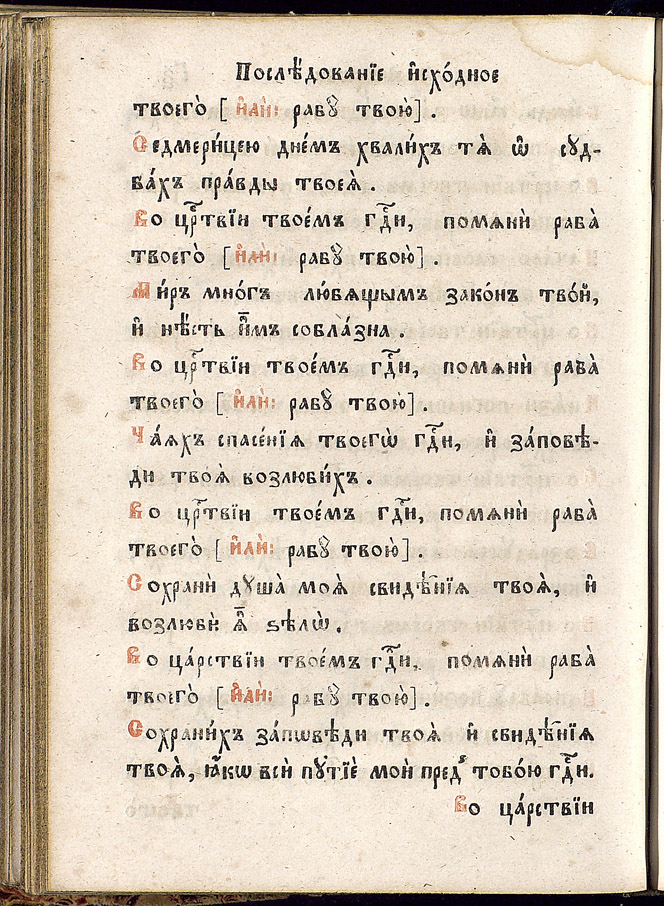 Послѣ́дованїе и҆схо́дное
твоего̀ [ и҆лѝ: рабꙋ̀ твою̀] .
Седмери́цею дне́мъ хвали́хъ тѧ̀ ѡ҆ сꙋд-
ба́хъ пра́вды твоеѧ̀ .
Во црⷭ҇твїи твое́мъ гдⷭ҇и, помѧнѝ раба̀
твоего̀ [ и҆лѝ: рабꙋ̀ твою̀] .
Ми́ръ мно́гъ лю́бѧщымъ зако́нъ тво́й,
и҆ нѣ́сть и҆̀мъ собла́зна .
Во црⷭ҇твїи твое́мъ гдⷭ҇и, помѧнѝ раба̀
твоего̀ [ и҆лѝ: рабꙋ̀ твою̀] .
Ча́ѧхъ спасе́нїѧ твоегѡ̀ гдⷭ҇и, и҆ за́повѣ-
ди твоѧ̀ возлюби́хъ .
Во црⷭ҇твїи твое́мъ гдⷭ҇и, помѧнѝ раба̀
твоего̀ [ и҆лѝ: рабꙋ̀ твою̀] .
Сохранѝ дꙋша̀ моѧ̀ свидѣ́нїѧ твоѧ̀, и҆
возлюбѝ ѧ҆̀ ѕѣлѡ̀ .
Во ца́рствїи твое́мъ гдⷭ҇и, помѧнѝ раба̀
твоего̀ [ и҆лѝ: рабꙋ̀ твою̀] .
Сохрани́хъ за́пѡвѣди твоѧ̀ и҆ свидѣ́нїѧ
твоѧ̀, ꙗ҆́кѡ всѝ пꙋтїѐ моѝ пред̾ тобо́ю гдⷭ҇и.
Во ца́рствїи